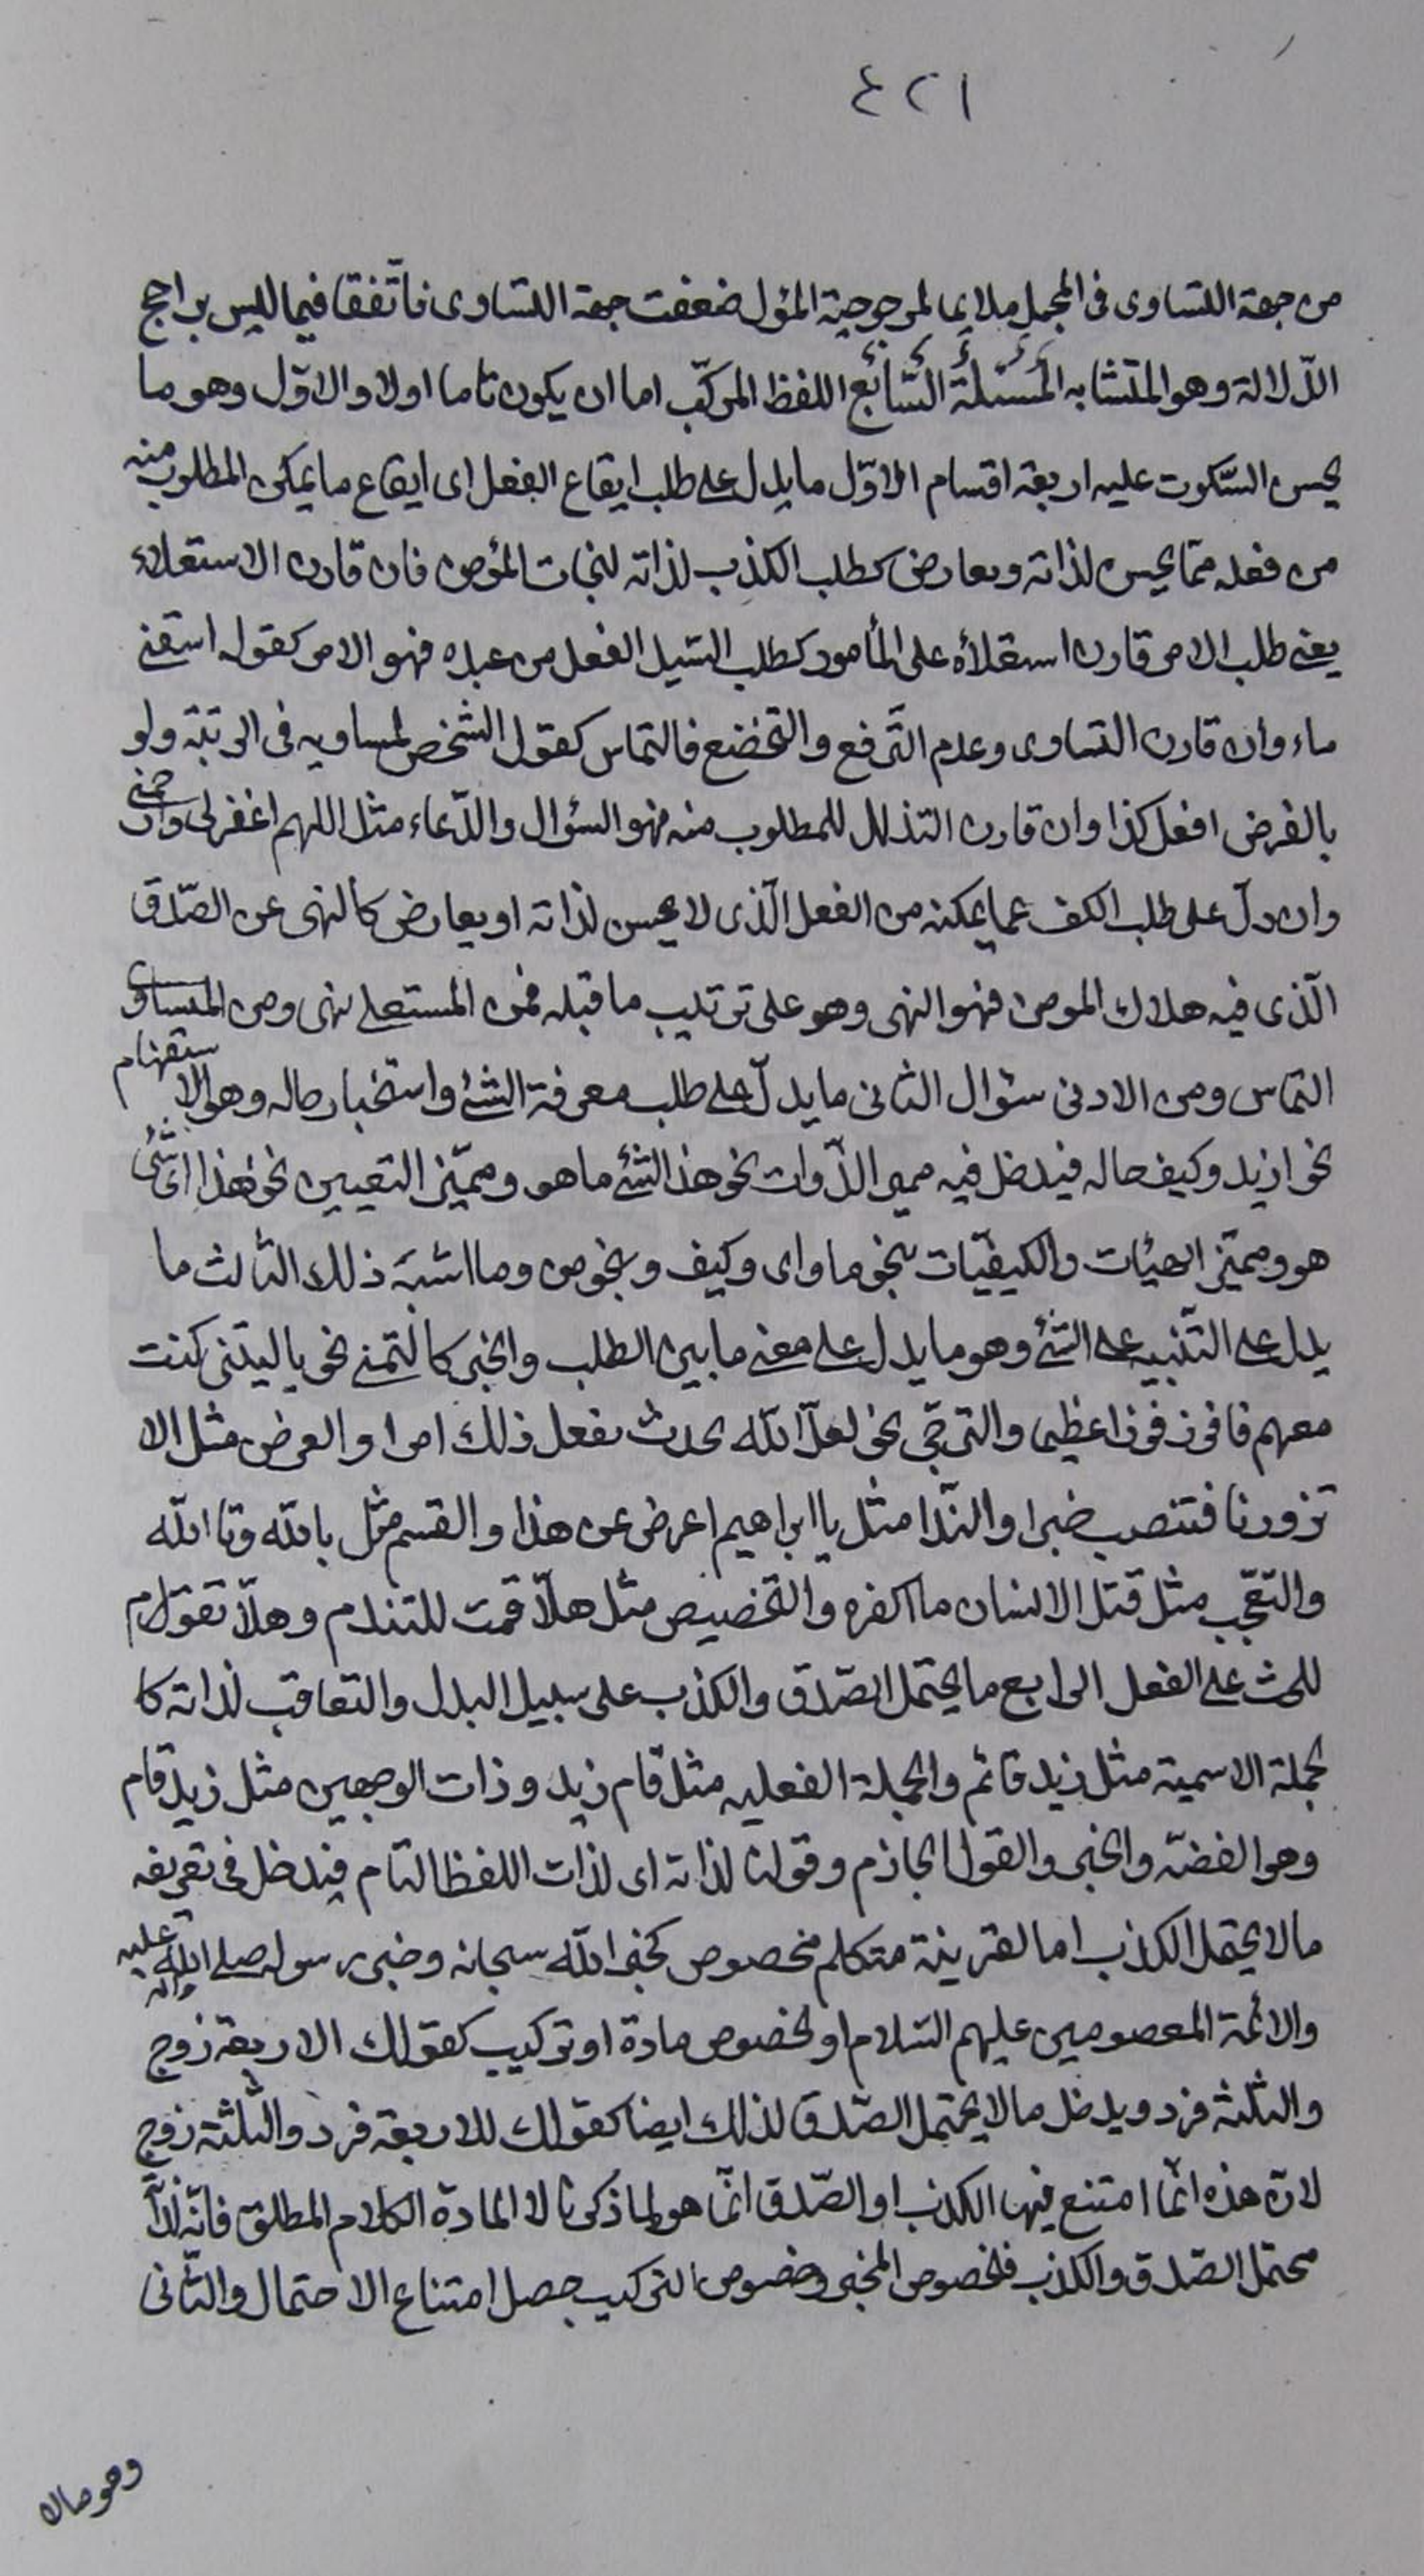 ٤٢١
من جهة التساوى فى المجمل ملايما لمرجوحية المؤل ضعفت جهة التساوى فاتّفقا فيما ليس براجح
الدّلالة وهو المتشابه المسئلة السّابع اللفظ المركّب اما ان يكون تاما اولا والاوّل وهو ما
يحسن السّكوت عليه اربعة اقسام الاوّل ما يدل على طلب ايقاع الفعل اى ايقاع ما يمكن المطلوب منه
من فعله ممّا يحسن لذاته ويعارض كطلب الكذب لذاته لنجات المؤمن فان قارن الاستعلاء
يعنى طلب الامر قارن استعلاؤه على المأمور كطلب السّيد الفعل من عبده فهو الامر كقوله اسقنى
ماء وان قارن التساوى وعدم التّرفع والتخضع فالتماس كقول الشخص لمساويه فى الرتبة ولو
بالفرض افعل كذا وان قارن التذلل للمطلوب منه فهو السؤال والدّعاء مثل اللهم اغفر لى وارحمنى
وان دلّ على طلب الكف عما يمكنه من الفعل الّذى لا يحسن لذاته او يعارض كالنهى عن الصّدق
الّذى فيه هلاك المومن فهو النهى وهو على ترتيب ما قبله فمن المستعلى نهى ومن المساوى
التماس ومن الادنى سئوال الثانى ما يدلّ على طلب معرفة الشئ واستخبار حاله وهو الاستفهام
نحو ازيد وكيف حاله فيدخل فيه مميز الذّوات نحو هذا الشئ ما هو ومميّز التعيين نحو هذا اىّ شئ
هو ومميّز الهيئات والكيفيّات نحو ما واى وكيف ونحو من وما اشبه ذلك الثالث ما
يدل على التّنبيه على الشئ وهو ما يدل على معنى ما بين الطلب والخبر كالتمنى نحو يا ليتنى كنت
معهم فافوز فوزا عظيما والترجّى نحو لعلّ الله يحدث بعد ذلك امرا والعرض مثل الا
تزورنا فتنصب خبرا والنّدا مثل يا ابراهيم اعرض عن هذا والقسم مثل بالله وتا الله
والتعجّب مثل قتل الانسان ما اكفره والتخصيص مثل هلّا قمت للتندم وهلّا تقوم
للحث على الفعل الرابع ما يحتمل الصّدق والكذب على سبيل البدل والتعاقب لذاته كا
لجملة الاسمية مثل زيد قائم والجملة الفعليه مثل قام زيد وذات الوجهين مثل زيد قام
وهو القضيّة والخبر والقول الجازم وقولنا لذاته اى لذات اللفظ التام فيدخل فى تعريفه
ما لا يحتمل الكذب اما لقرينة متكلم مخصوص كخبر الله سبحانه وخبر رسوله صلى الله عليه واله
والائمة المعصومين عليهم السّلام او لخصوص مادة او تركيب كقولك الاربعة زوج
والثلثة فرد ويدخل ما لا يحتمل الصّدق لذلك ايضا كقولك للاربعة فرد والثّلثة زوج
لانّ هذه انّما امتنع فيها الكذب او الصّدق انّما هو لما ذكرنا لا المادة الكلام المطلق فانّه لذاته
محتمل الصّدق والكذب فلخصوص المخبر وخصوص التركيب حصل امتناع الاحتمال والثّانى
وهو ما لا